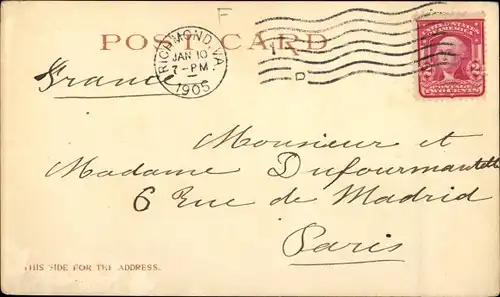 F
POST CARD
RICHMOND, VA.
JAN 10
7-PM
1905
D
UNITED STATES
OF AMERICA
2 2
POSTAGE
TWO CENTS
France
Monsieur et
Madame Dufourmantelle
6 Rue de Madrid
Paris
THIS SIDE FOR THE ADDRESS.